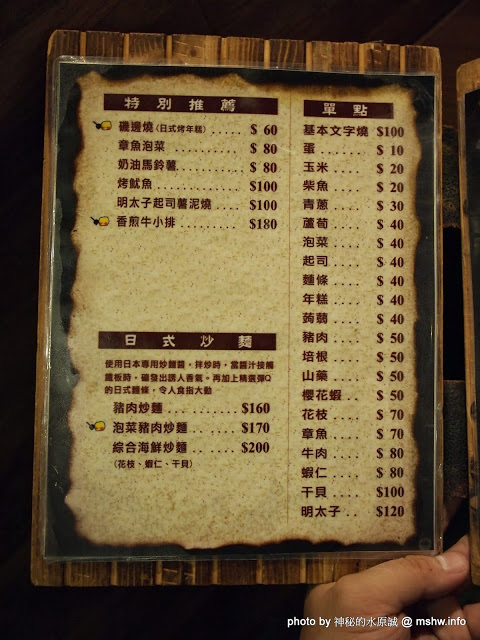 特別推薦
磯邊燒(日式烤年糕)..... $ 60
章魚泡菜 .......... $ 80
奶油馬鈴薯.......... $ 80
烤魷魚 $100
明太子起司薯泥燒 .... $100
香煎牛小排 $180
日式炒麵
使用日本專用炒麵醬，拌炒時，當醬汁接觸
鐵板時，礤發出誘人香氣。再加上精選彈Q
的日式麵條，令人食指大動
豬肉炒麵 ........... $160
泡菜豬肉炒麵 ....... $170
綜合海鮮炒麵 ....... $200
(花枝、蝦仁、干貝)
單點
基本文字燒 $100
蛋..... $ 10
玉米.... $ 20
柴魚.... $ 20
青蔥.... $ 30
蘆荀.... $ 40
泡菜.... $ 40
起司.... $ 40
麵條.... $ 40
年糕.... $ 40
蒟蒻.... $ 40
豬肉.... $ 50
培根.... $ 50
山藥.... $ 50
櫻花蝦.. $ 50
花枝.... $ 70
章魚.... $ 70
牛肉.... $ 80
蝦仁.... $ 80
干貝.... $100
明太子.. $120
photo by 神秘的水原誠 @ mshw.info